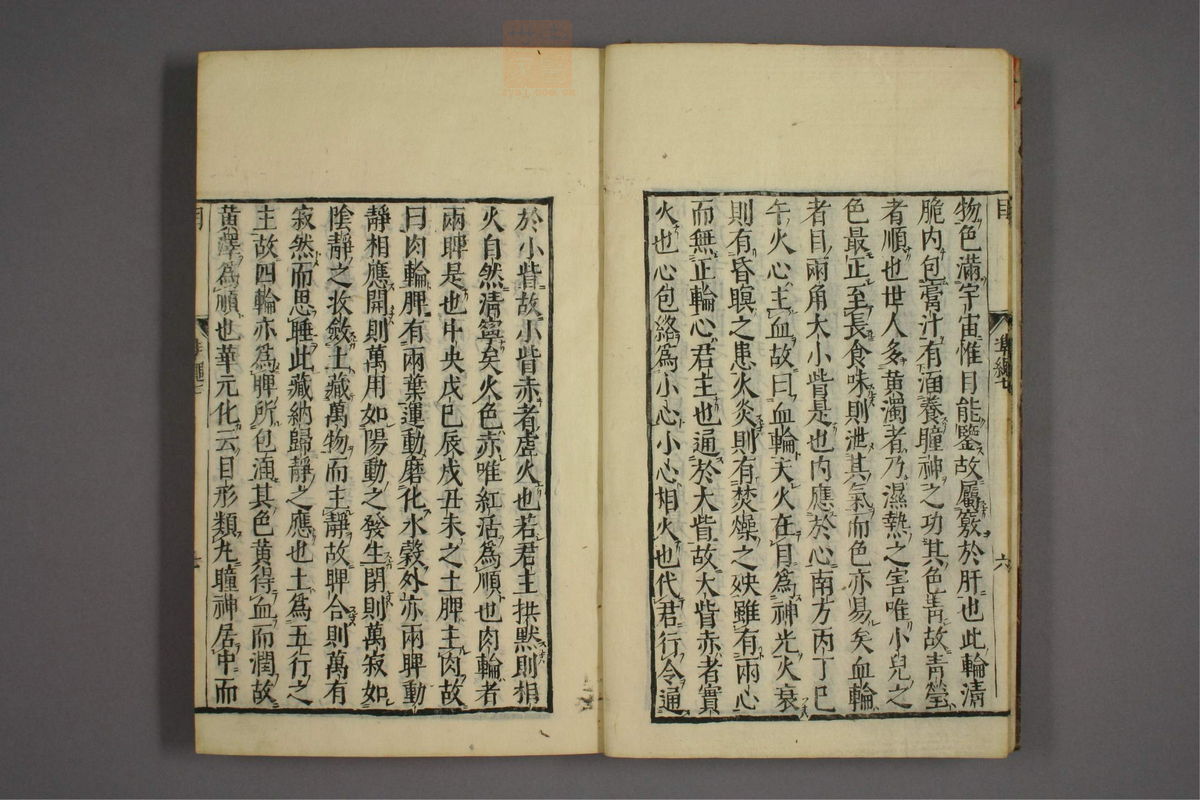 物色滿宇宙惟目能鑒故屬竅於肝也此輪清
脆内包膏汁有涵養瞳神之功其色青故青瑩
者順也世人多黄濁者乃濕熱之害唯小兒之
色最正至長食味則泄其氣而色亦易矣血輪
者目兩角大小眥是也内應於心南方丙丁巳
午火心主血故曰血輪夫火在目為神光火衰
則有昏瞑之患火炎則有焚燥之殃雖有兩心
而無正輪心君主也通於大眥故大眥赤者實
火也心包絡為小心小心相火也代君行令通
於小眥故小眥赤者虛火也若君主拱默則相
火自然清寧矣火色赤唯紅活為順也肉輪者
兩睥是也中央戊巳辰戌丑未之土脾主肉故
曰肉輪脾有兩葉運動磨化水穀外亦兩睥動
靜相應開則萬用如陽動之發生閉則萬寂如
陰靜之收斂土藏萬物而主靜故睥合則萬有
寂然而思睡此藏納歸靜之應也土為五行之
主故四輪亦為睥所包涵其色黄得血而潤故
黄澤為順也華元化云目形類丸瞳神居中而
目
準繩七
六